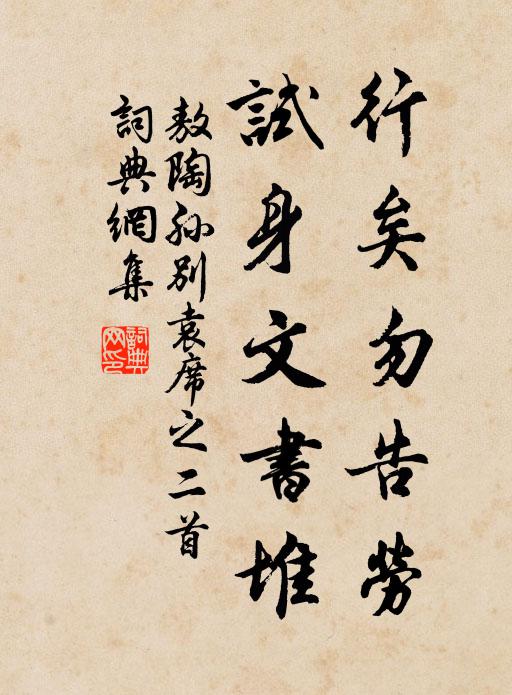 行矣勿告勞
試身文書堆
敖陶孙別袁席之二首
詞典網集
詞典網印